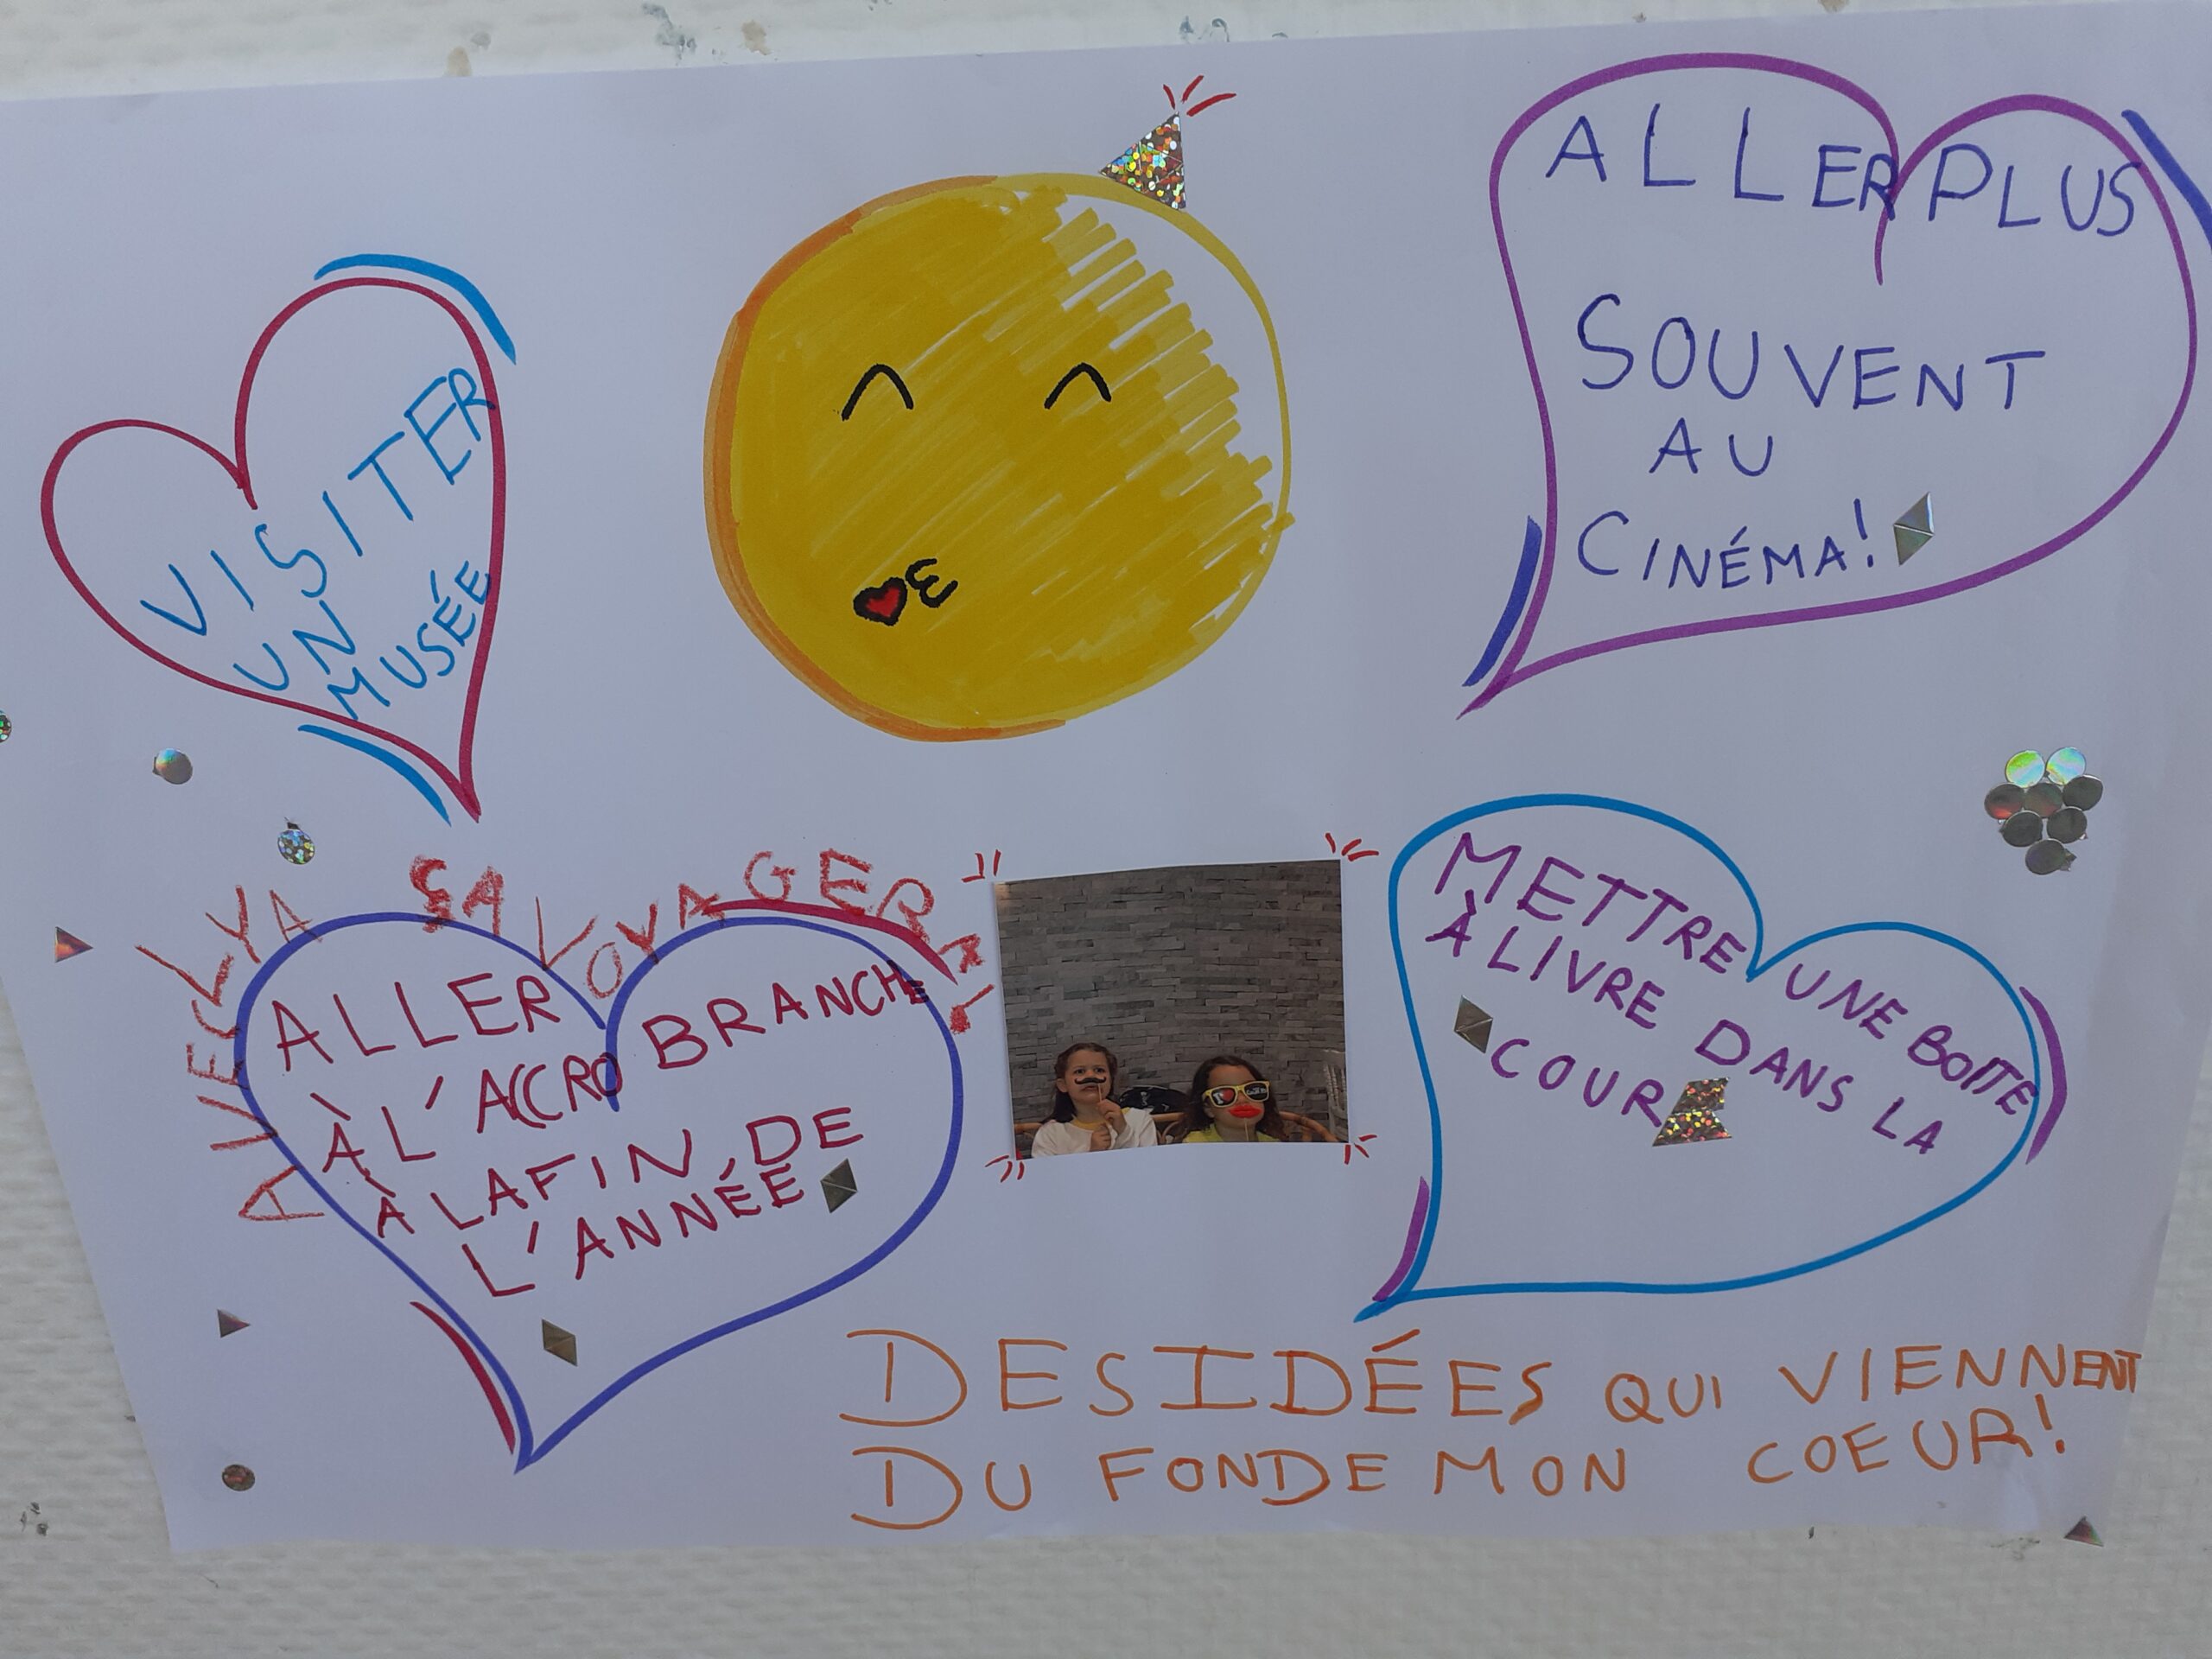 VISITER
UN
MUSÉE
ALLER PLUS
SOUVENT
AU
CINÉMA!
AVEC LYA ÇA VA VOYAGER
ALLER
À L'ACCROBRANCHE
À LA FIN DE
L'ANNÉE
METTRE UNE BOITE
À LIVRE DANS LA
COUR
DES IDÉES QUI VIENNENT
DU FOND DE MON COEUR!